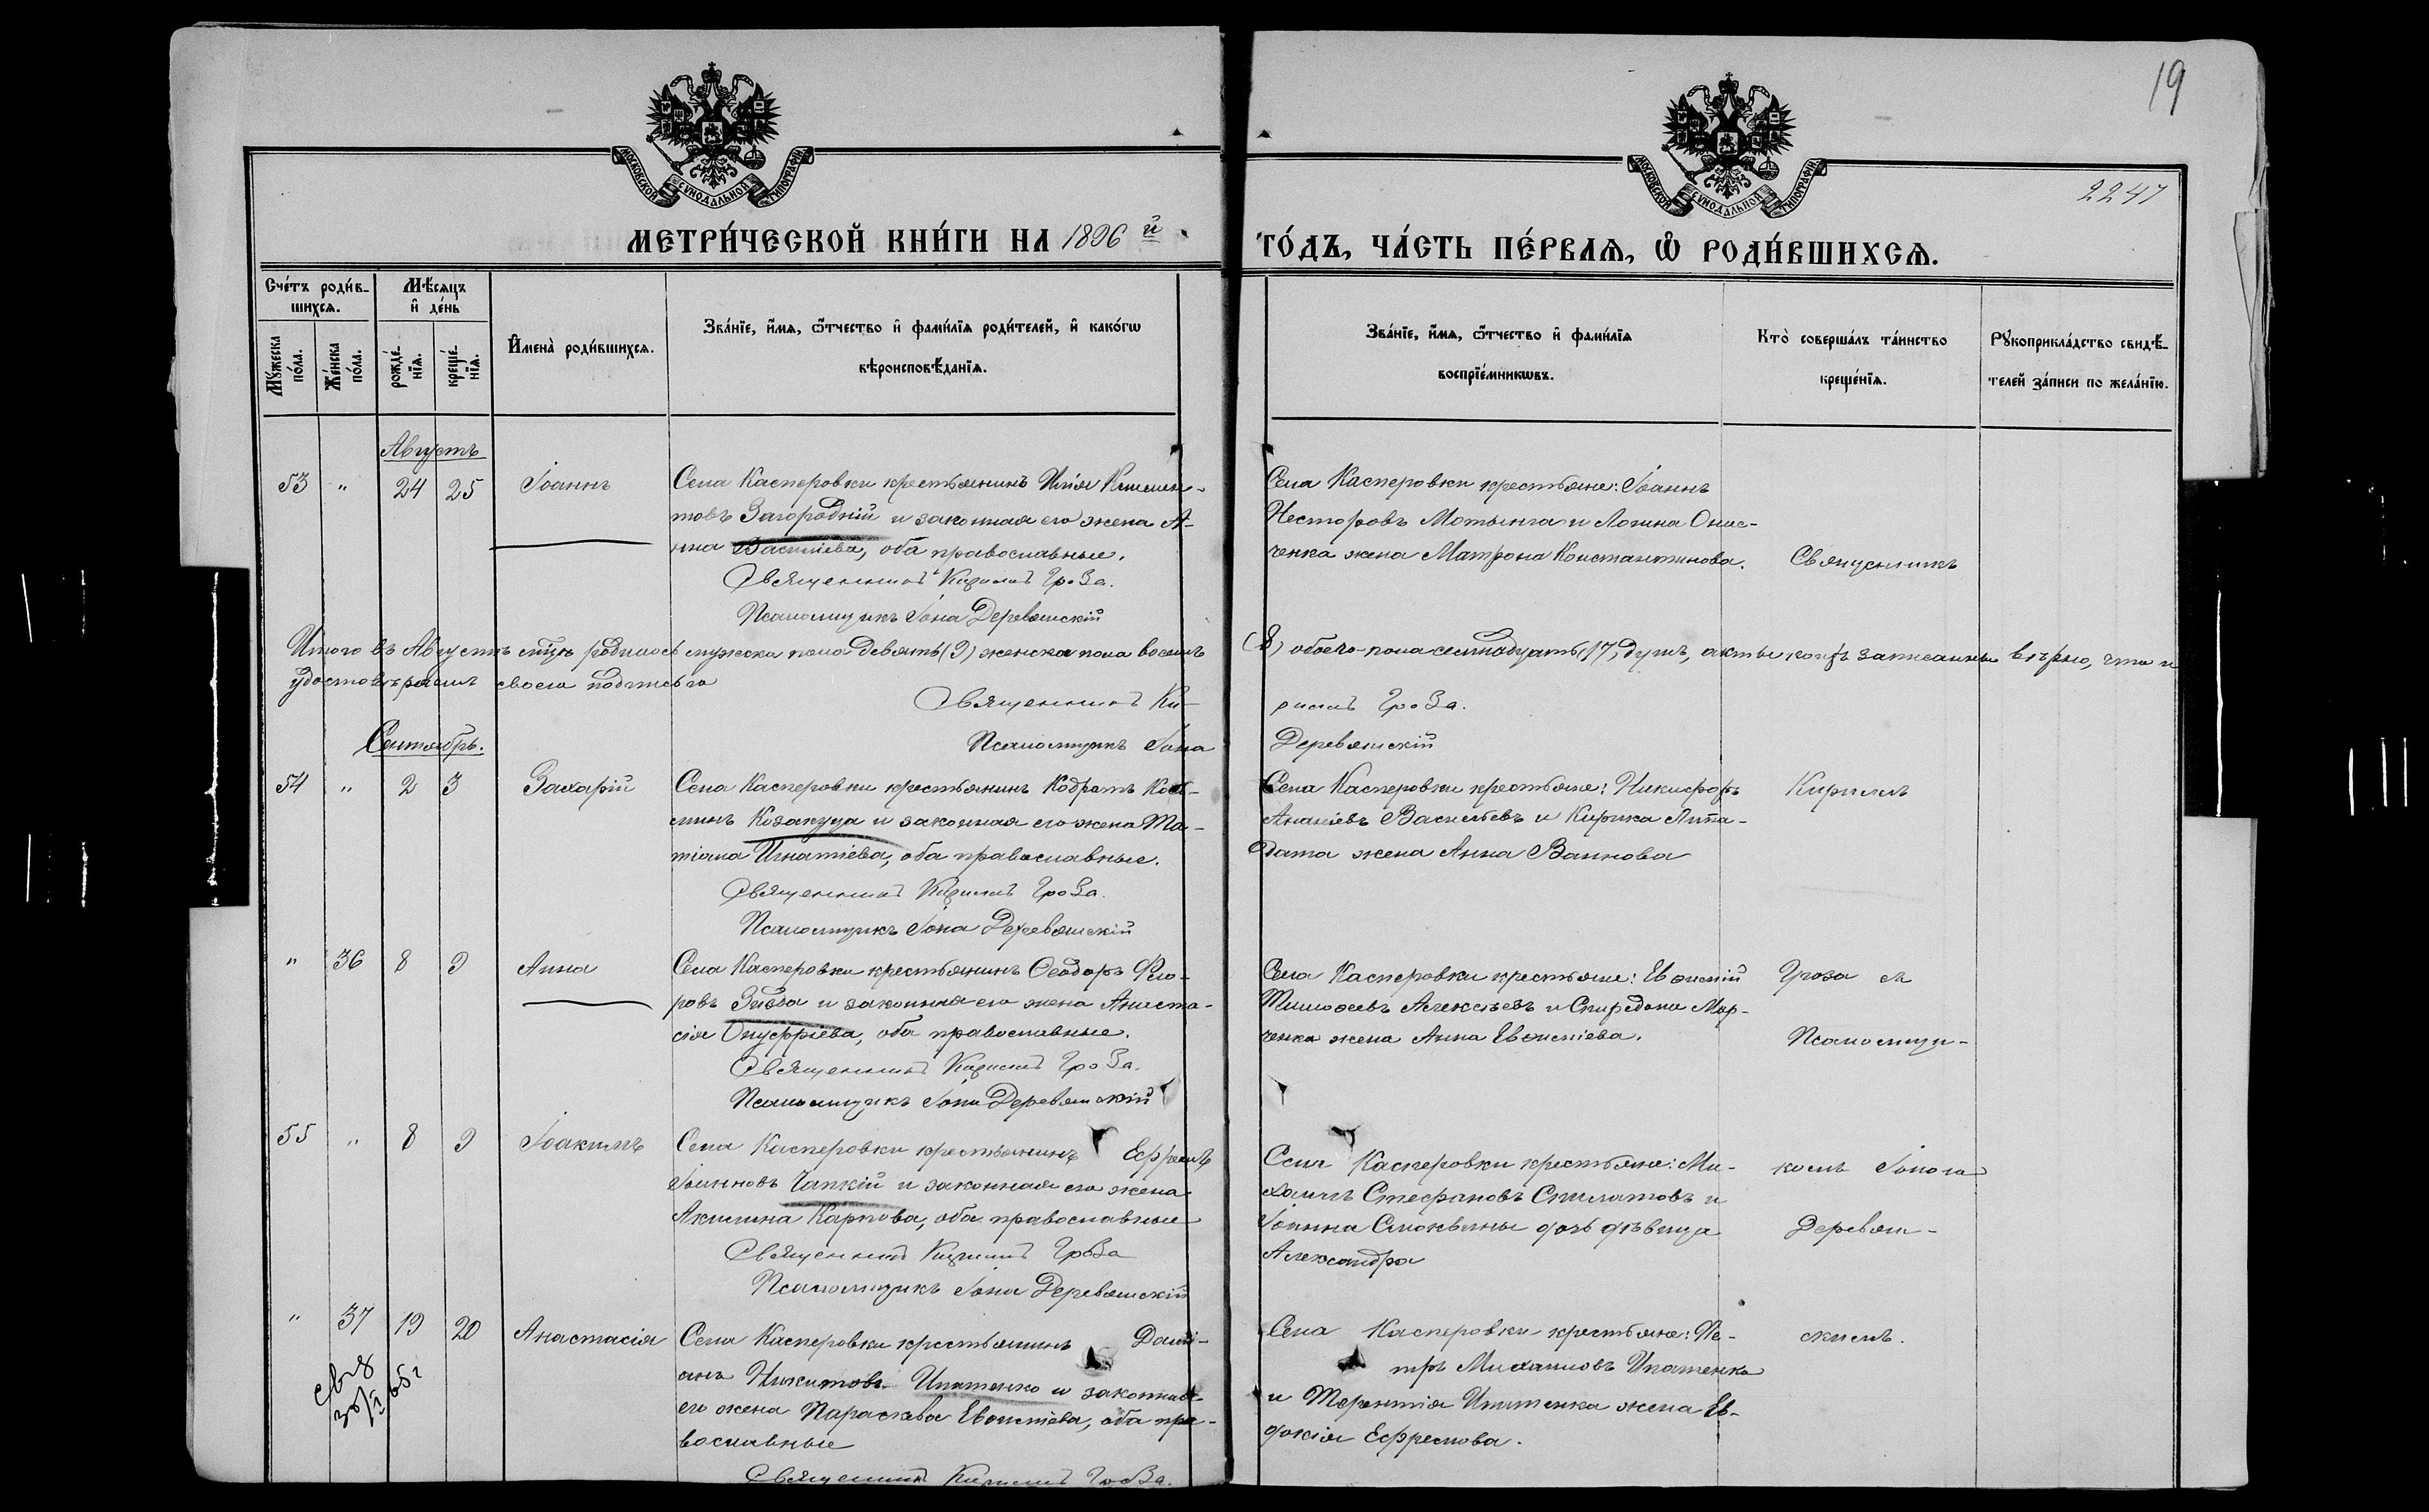 19
МОСКОВСКОЙ СѴНОДАЛЬНОЙ ТИПОГРАФІИ
МОСКОВСКОЙ СѴНОДАЛЬНОЙ ТИПОГРАФІИ
2247
МЕТРИ́ЧЕСКОЙ КНИ́ГИ НА 1896 й
ГО́ДЪ, ЧА́СТЬ ПЕ́РВАѦ, Ѡ҆ РОДИ́ВШИХСѦ.
Сче́тъ роди́в-
шихсѧ.
Мѣ́сѧцъ
и҆ де́нь
Мꙋ́жеска по́ла.
Же́нска по́ла.
рожде́-
нїѧ.
креще́-
нїѧ.
И҆мена̀ роди́вшихсѧ.
Зва́нїе, и҆́мѧ, ѻ҆́тчество и҆ фами́лїѧ роди́телей, и҆ како́гѡ
вѣроисповѣ́данїѧ.
Зва́нїе, и҆́мѧ, ѻ҆́тчество и҆ фами́лїѧ
воспрїе́мникѡвъ.
Кто̀ соверша́лъ та́инство
креще́нїѧ.
Рꙋкоприкла́дство свидѣ́-
телей за́писи по жела́нїю.
Августъ
53 " 24 25 Іоаннъ
Села Касперовки крестьянинъ Илія Климен-
товъ Загородній и законная его жена А-
нна Василіева, оба православные.
Священникъ Кириллъ Гроза.
Псаломщикъ Іона Деревянскій
Села Касперовки крестьяне: Іоаннъ
Несторовъ Мотынга и Логина Онис-
ченка жена Матрона Константинова.
Священникъ
Итого въ Августѣ мцѣ родилось мужска пола девять (9) женска пола восемь (8) обоего пола семнадцать (17) душъ, акты коихъ записаны вѣрно, что и
удостовѣряемъ своею подписью
Священникъ Ки-
риллъ Гроза.
Псаломщикъ Іона
Деревянскій
Сентябрь.
54 " 2 3 Захарій
Села Касперовки крестьянинъ Кодратъ Косъ-
минъ Козакуца и законная его жена Та-
тіана Игнатіева, оба православные.
Священникъ Кириллъ Гроза.
Псаломщикъ Іона Деревянскій
Села Касперовки крестьяне: Никифоръ
Ананіевъ Васильевъ и Кирика Липа-
дата жена Анна Ваинова
Кириллъ
" 36 8 9 Анна
Села Касперовки крестьянинъ Ѳеодоръ Фло-
ровъ Зибза и законная его жена Анаста-
сія Онуфріева, оба православные.
Священникъ Кириллъ Гроза.
Псаломщикъ Іона Деревянскій
Села Касперовки крестьяне: Евѳимій
Тимоѳеевъ Алексѣевъ и Спиридона Мар-
ченка жена Анна Евѳиміева.
Гроза съ
Псаломщи-
55 " 8 9 Іоакимъ
Села Касперовки крестьянинъ Ефремъ
Іоанновъ Чапкій и законная его жена
Акилина Карпова, оба православные
Священникъ Кириллъ Гроза
Псаломщикъ Іона Деревянскій
Села Касперовки крестьяне: Ми-
хаилъ Стефановъ Спилатовъ и
Іоанна Смоквины дочь дѣвица
Александра
комъ Іоною
Деревян-
" 37 19 20 Анастасія
Села Касперовки крестьянинъ Дамі-
анъ Никитовъ Ипатенко и законная
его жена Параскева Евѳиміева, оба пра-
вославные
Священникъ Кириллъ Гроза.
Села Касперовки крестьяне: Пе-
тръ Михаиловъ Ипатенко
и Терентія Ипатенка жена Ев-
докія Ефремова.
скимъ.